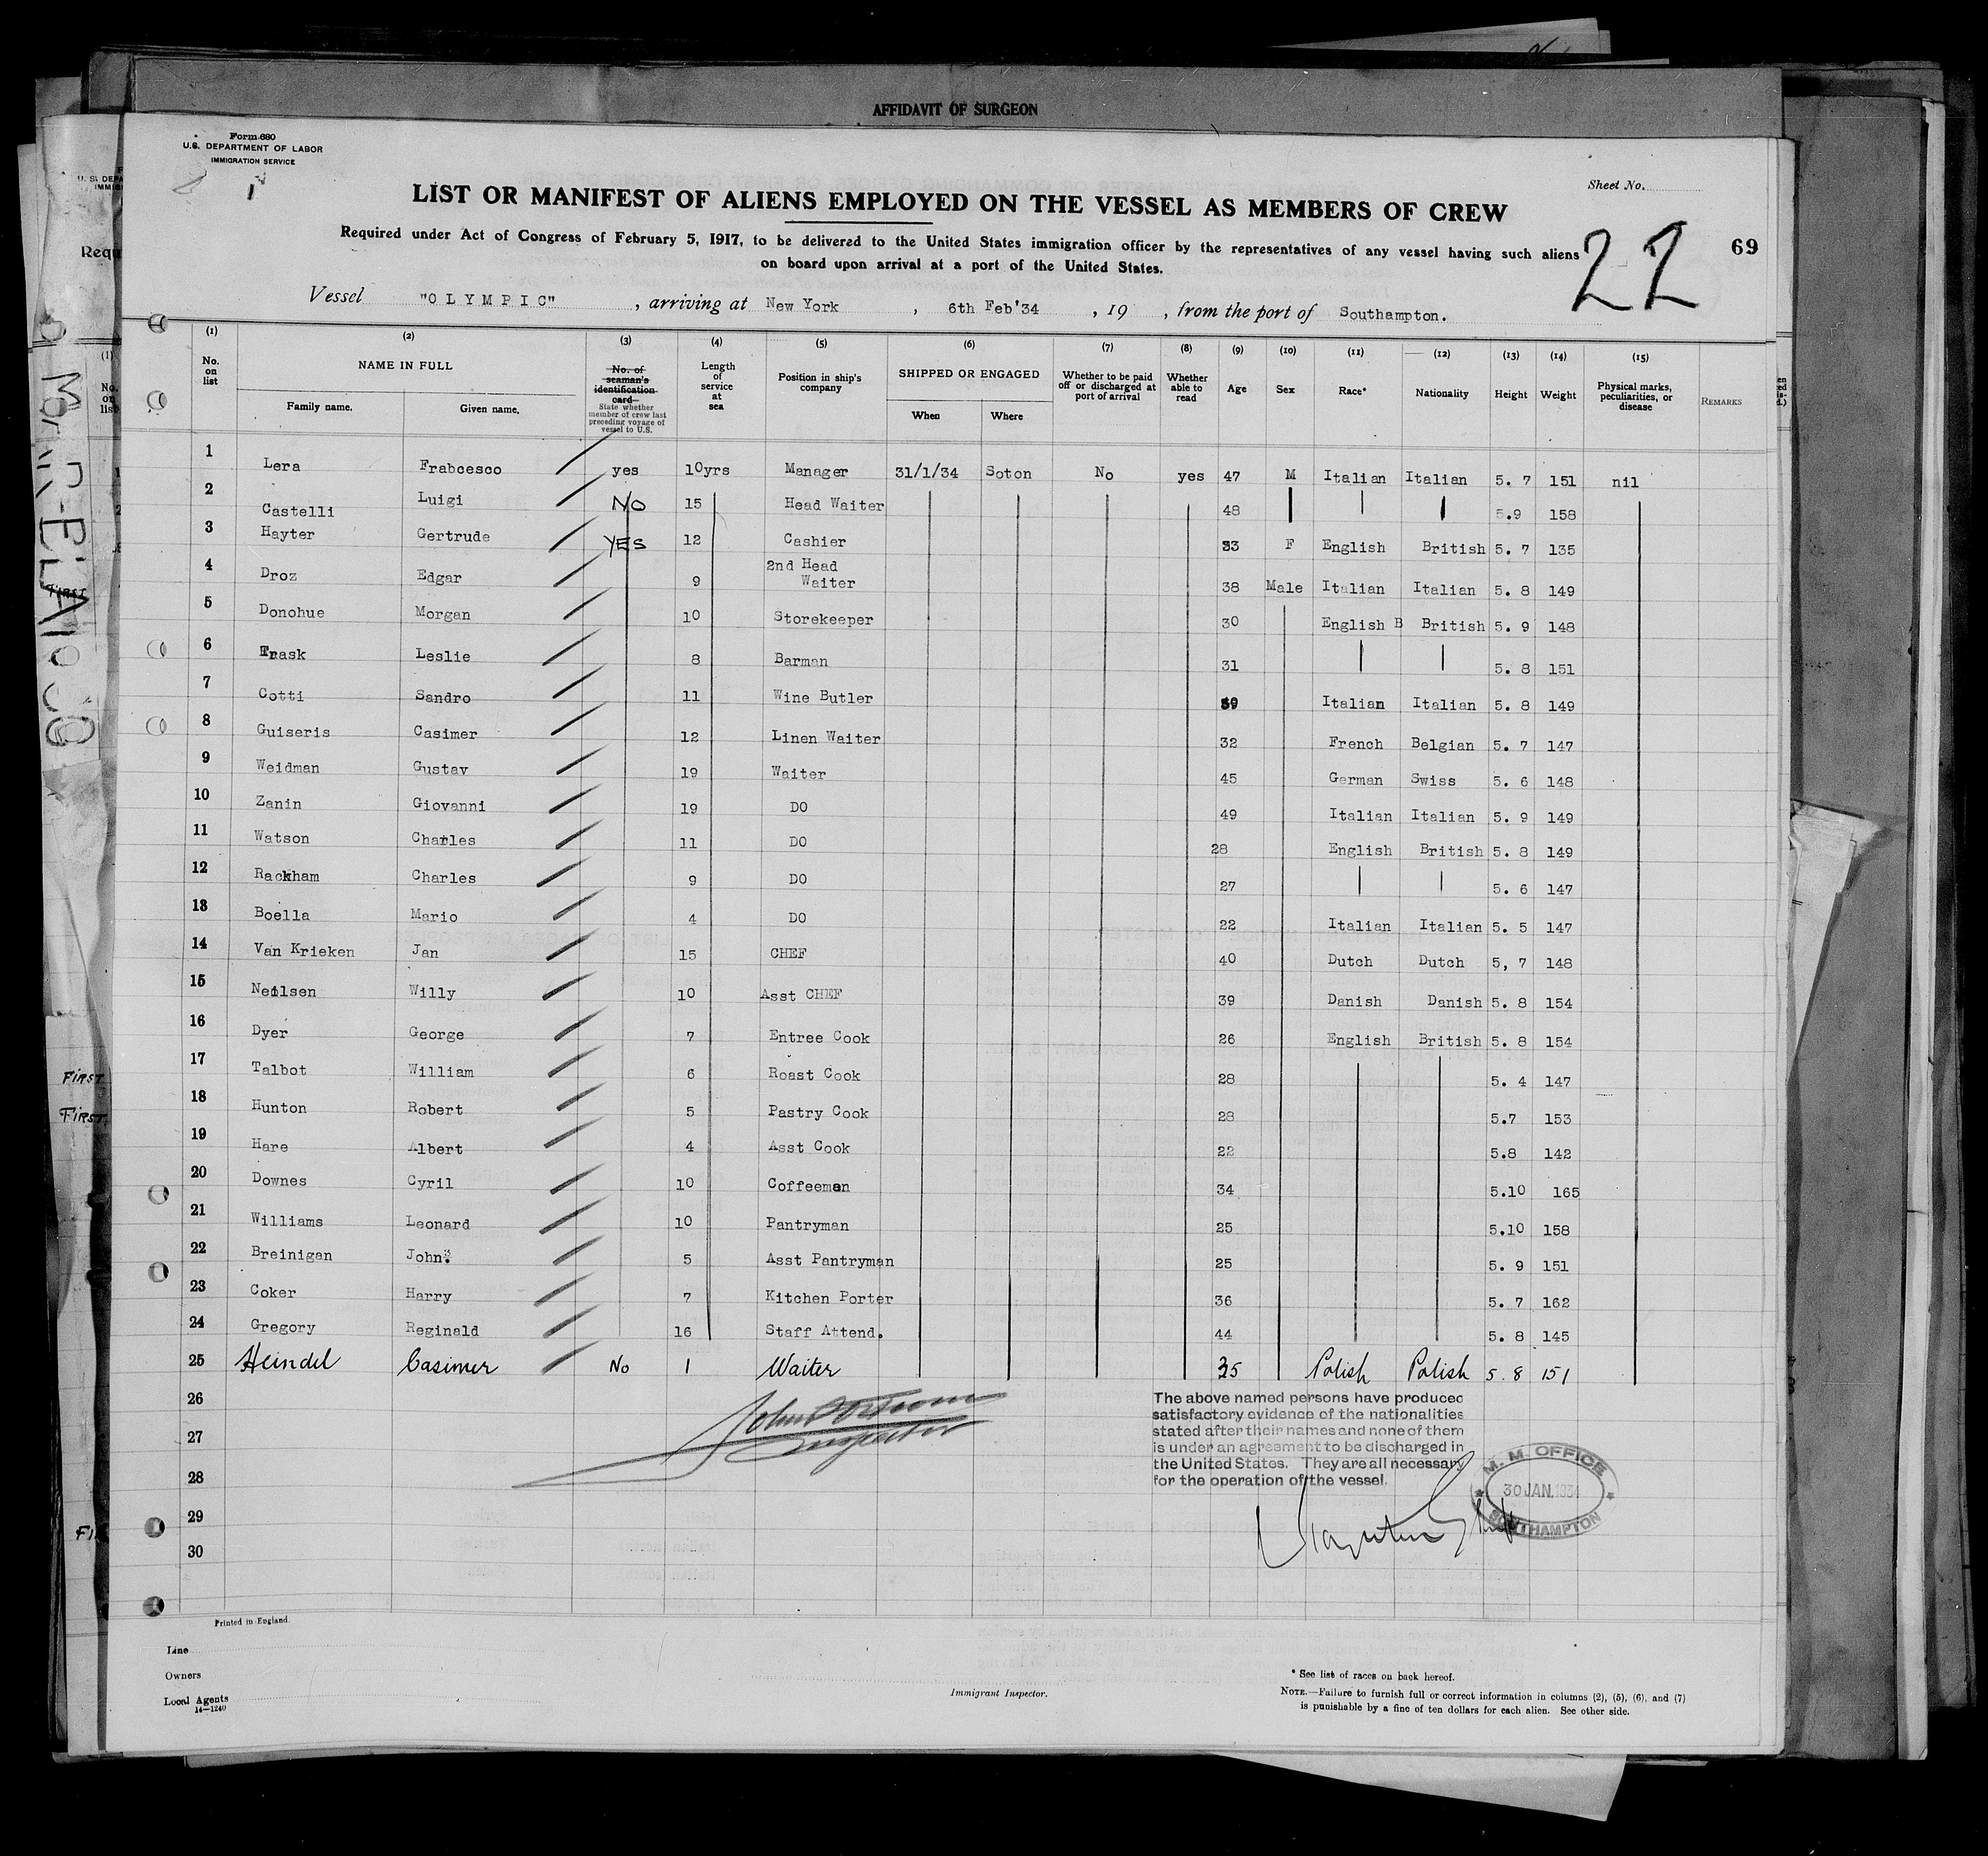 AFFIDAVIT OF SURGEON
Form 680
U.S. DEPARTMENT OF LABOR
IMMIGRATION SERVICE
Sheet No.
LIST OR MANIFEST OF ALIENS EMPLOYED ON THE VESSEL AS MEMBERS OF CREW
Required under Act of Congress of February 5, 1917, to be delivered to the United States immigration officer by the representatives of any vessel having such aliens
on board upon arrival at a port of the United States.
22
69
Vessel "OLYMPIC", arriving at New York, 6th Feb'34, 19, from the port of Southampton.
(1) (2) (3) (4) (5) (6) (7) (8) (9) (10) (11) (12) (13) (14) (15)
No. on list NAME IN FULL No. of seaman's identification card State whether member of crew last preceding voyage of vessel to U.S. Length of service at sea Position in ship's company SHIPPED OR ENGAGED Whether to be paid off or discharged at port of arrival Whether able to read Age Sex Race* Nationality Height Weight Physical marks, peculiarities, or disease REMARKS
Family name. Given name. When Where
1 Lera Frabcesco yes 10yrs Manager 31/1/34 Soton No yes 47 M Italian Italian 5. 7 151 nil
2 Castelli Luigi NO 15 Head Waiter 48 5.9 158
3 Hayter Gertrude YES 12 Cashier 33 F English British 5. 7 135
4 Droz Edgar 9 2nd Head Waiter 38 Male Italian Italian 5. 8 149
5 Donohue Morgan 10 Storekeeper 30 English B British 5. 9 148
6 Leslie 8 Barman 31 5. 8 151
7 Cotti Sandro 11 Wine Butler Italian Italian 5. 8 149
8 Guiseris Casimer 12 Linen Waiter 32 French Belgian 5. 7 147
9 Weidman Gustav 19 Waiter 45 German Swiss 5. 6 148
10 Zanin Giovanni 19 DO 49 Italian Italian 5. 9 149
11 Watson Charles 11 DO 28 English British 5. 8 149
12 Rackham Charles 9 DO 27 5. 6 147
13 Boella Mario 4 DO 22 Italian Italian 5. 5 147
14 Van Krieken Jan 15 CHEF 40 Dutch Dutch 5, 7 148
15 Neilsen Willy 10 Asst CHEF 39 Danish Danish 5. 8 154
16 Dyer George 7 Entree Cook 26 English British 5. 8 154
17 Talbot William 6 Roast Cook 28 5. 4 147
18 Hunton Robert 5 Pastry Cook 28 5.7 153
19 Hare Albert 4 Asst Cook 22 5.8 142
20 Downes Cyril 10 Coffeeman 34 5.10 165
21 Williams Leonard 10 Pantryman 25 5.10 158
22 Breinigan John 5 Asst Pantryman 25 5. 9 151
23 Coker Harry 7 Kitchen Porter 36 5. 7 162
24 Gregory Reginald 16 Staff Attend. 44 5. 8 145
25 Heindel Casimer No 1 Waiter 35 Polish Polish 5. 8 151
26
27
28
29
30
Inspector
The above named persons have produced
satisfactory evidence of the nationalities
stated after their names and none of them
is under an agreement to be discharged in
the United States. They are all necessary
for the operation of the vessel.
M. M. OFFICE
30 JAN. 1934
SOUTHAMPTON
Printed in England.
Line
Owners
Local Agents
14—1240
Immigrant Inspector.
* See list of races on back hereof.
NOTE.—Failure to furnish full or correct information in columns (2), (5), (6), and (7)
is punishable by a fine of ten dollars for each alien. See other side.
FIRST
FIRST
FIRST